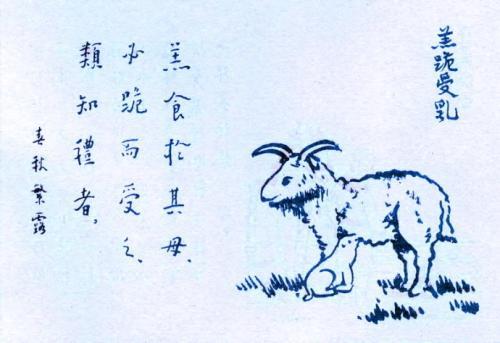 羔跪受乳
羔食於其母、
必跪而受之、
類知禮者，
春秋繁露